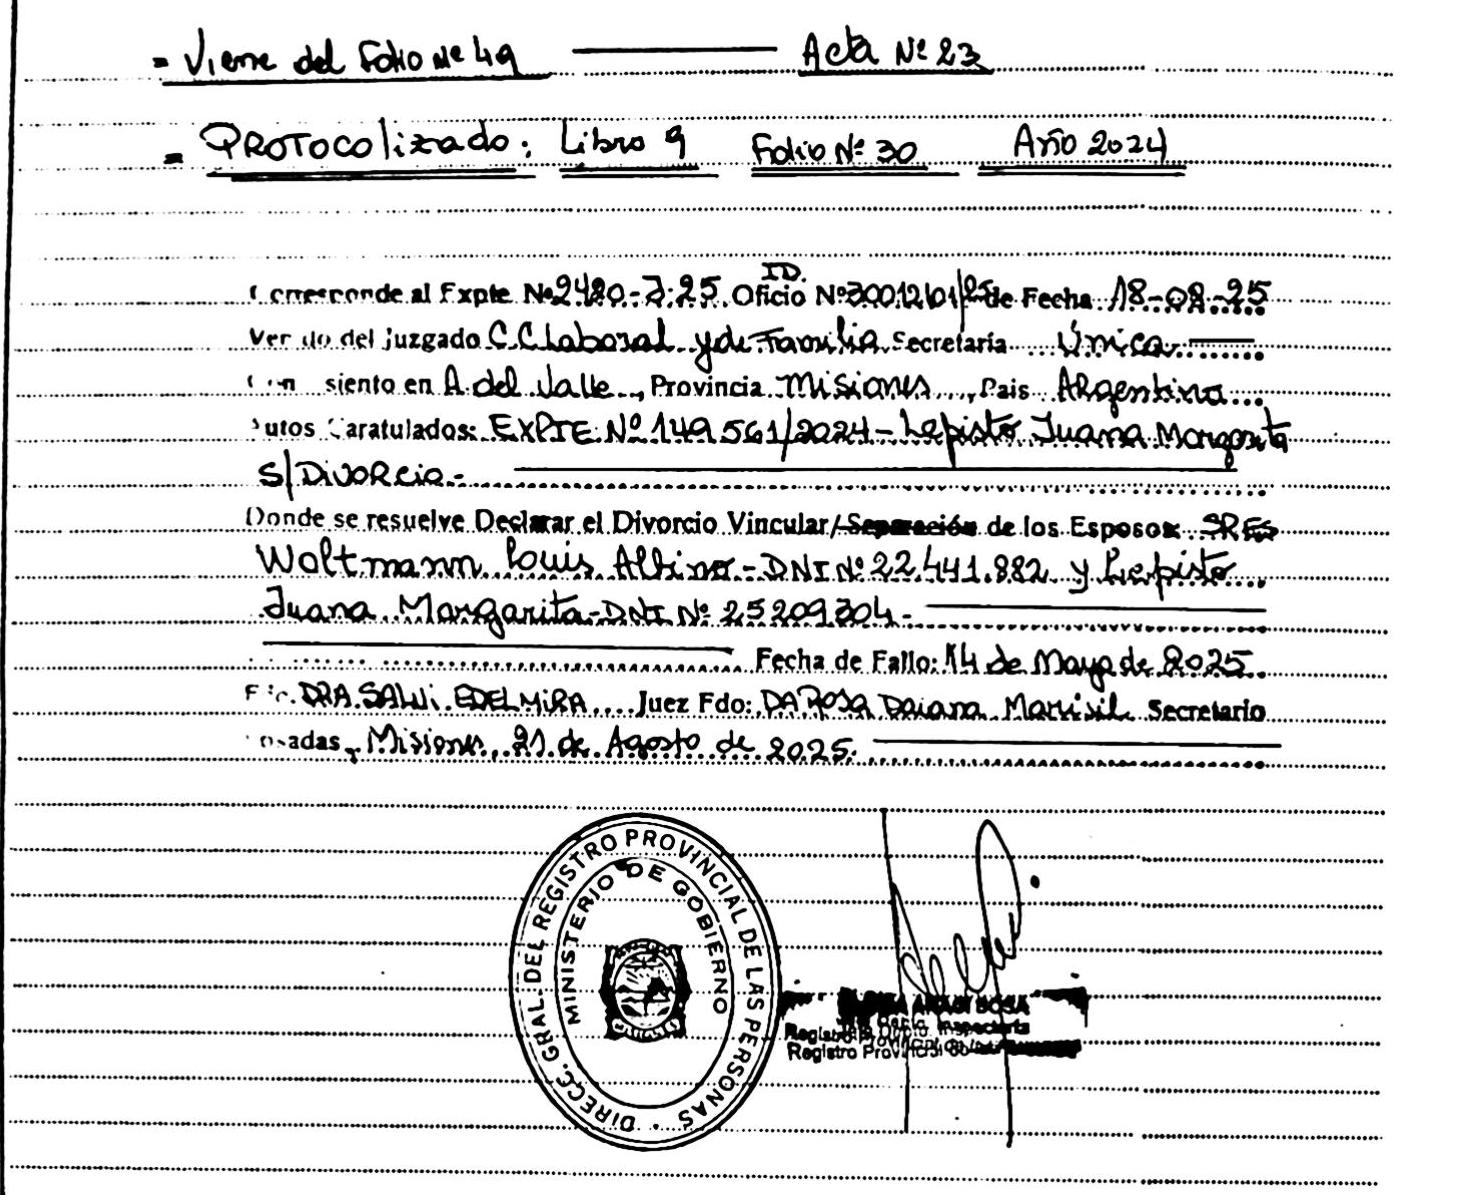 = Viene del Folio Nº 49 — Acta Nº 23
= PROTOCOlizado: Libro 9 Folio Nº 30 Año 2024
Corresponde al Expte Nº 2420-J-25 ID. Oficio Nº 30012601/25 de Fecha 18-08-25
Ver do del juzgado C.C Laboral y de Familia Secretaría Única
Con siento en A. del Valle, Provincia Misiones, País Argentina
Autos Caratulados: EXPTE Nº 149.561/2024 - Lepisto Juana Margarita
S/ Divorcio.-
Donde se resuelve Declarar el Divorcio Vincular/Separación de los Esposos SRES
Woltmann Louis Albino - DNI Nº 22.441.882 y Lepisto
Juana Margarita - DNI Nº 25209304 -
Fecha de Fallo: 14 de Mayo de 2025.
Fdo. DRA SALVI EDELMIRA Juez Fdo: DA ROSA Daiana Marisil Secretario
osadas, Misiones, 21 de Agosto de 2025.
DIRECC. GRAL. DEL REGISTRO PROVINCIAL DE LAS PERSONAS
MINISTERIO DE GOBIERNO
BOSA
Dpto. Inspectoria
Registro Provincial